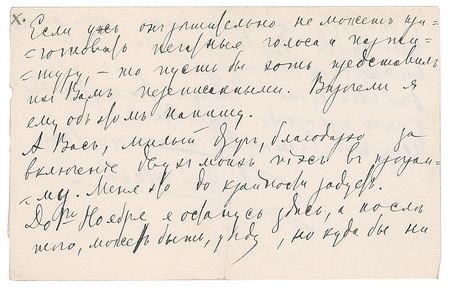 x.
Если … онъ решительно не можетъ при=
=готовить печатные голоса и парти=
=туру, – то пусть бы хоть представилъ
ихъ Вамъ переписанными. Впрочемъ я
ему объ этомъ напишу.
А Васъ, милый другъ, благодарю за
включеніе двухъ моихъ піэсъ въ програм=
=му. Меня это до крайности радуетъ.
До … Ноября я останусь здесь, а после
того, можетъ быть, уеду, но куда бы ни